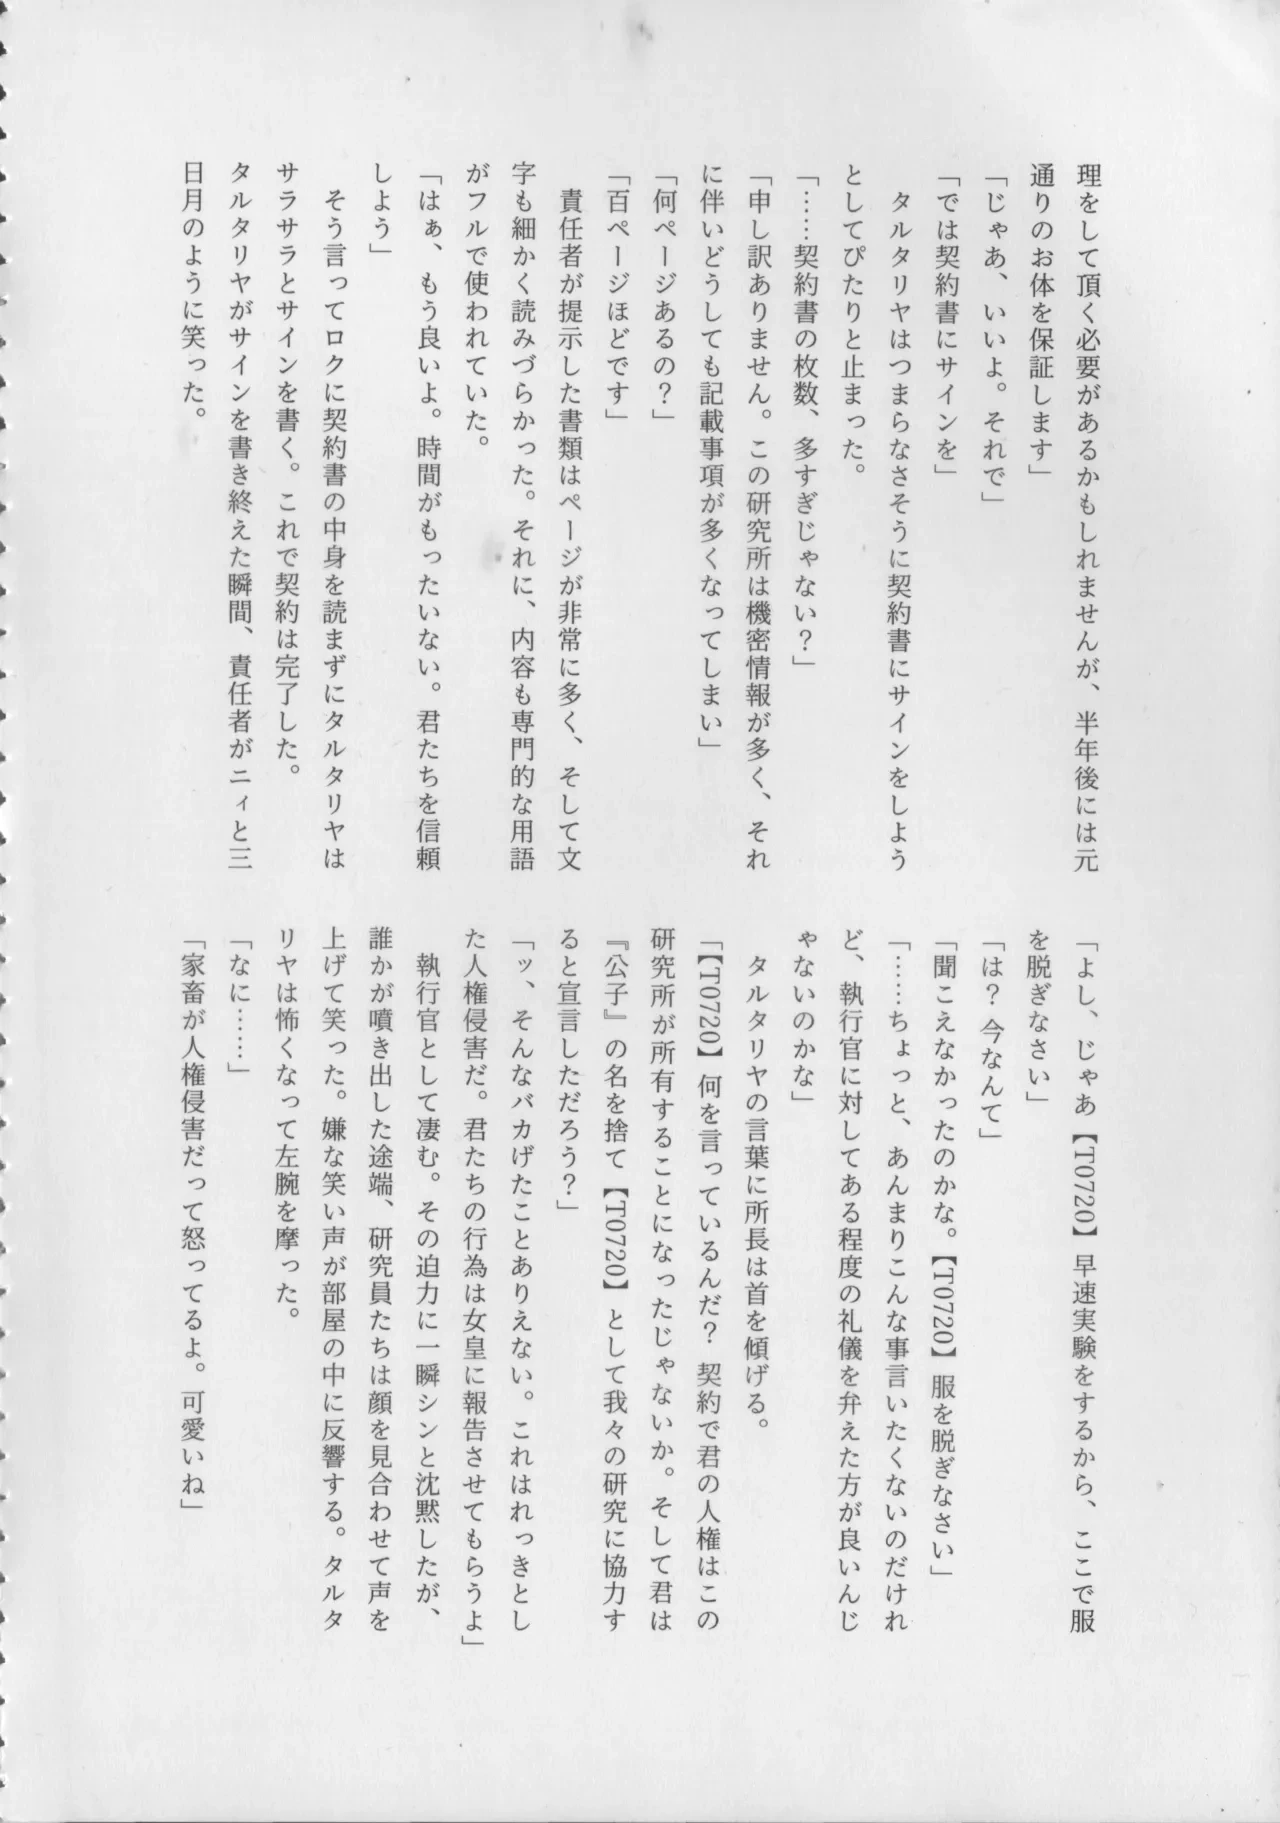 理をして頂く必要があるかもしれませんが、半年後には元
通りのお体を保証します」
「じゃあ、いいよ。それで」
「では契約書にサインを」
　タルタリヤはつまらなさそうに契約書にサインをしよう
としてぴたりと止まった。
「……契約書の枚数、多すぎじゃない？」
「申し訳ありません。この研究所は機密情報が多く、それ
に伴いどうしても記載事項が多くなってしまい」
「何ページあるの？」
「百ページほどです」
　責任者が提示した書類はページが非常に多く、そして文
字も細かく読みづらかった。それに、内容も専門的な用語
がフルで使われていた。
「はぁ、もう良いよ。時間がもったいない。君たちを信頼
しよう」
　そう言ってロクに契約書の中身を読まずにタルタリヤは
サラサラとサインを書く。これで契約は完了した。
タルタリヤがサインを書き終えた瞬間、責任者がニィと三
日月のように笑った。
「よし、じゃあ【T0720】早速実験をするから、ここで服
を脱ぎなさい」
「は？ 今なんて」
「聞こえなかったのかな。【T0720】服を脱ぎなさい」
「……ちょっと、あんまりこんな事言いたくないのだけれ
ど、執行官に対してある程度の礼儀を弁えた方が良いんじ
ゃないのかな」
　タルタリヤの言葉に所長は首を傾げる。
「【T0720】何を言っているんだ？ 契約で君の人権はこの
研究所が所有することになったじゃないか。そして君は
『公子』の名を捨て【T0720】として我々の研究に協力す
ると宣言しただろう？」
「ッ、そんなバカげたことありえない。これはれっきとし
た人権侵害だ。君たちの行為は女皇に報告させてもらうよ」
　執行官として凄む。その迫力に一瞬シンと沈黙したが、
誰かが噴き出した途端、研究員たちは顔を見合わせて声を
上げて笑った。嫌な笑い声が部屋の中に反響する。タルタ
リヤは怖くなって左腕を摩った。
「なに……」
「家畜が人権侵害だって怒ってるよ。可愛いね」